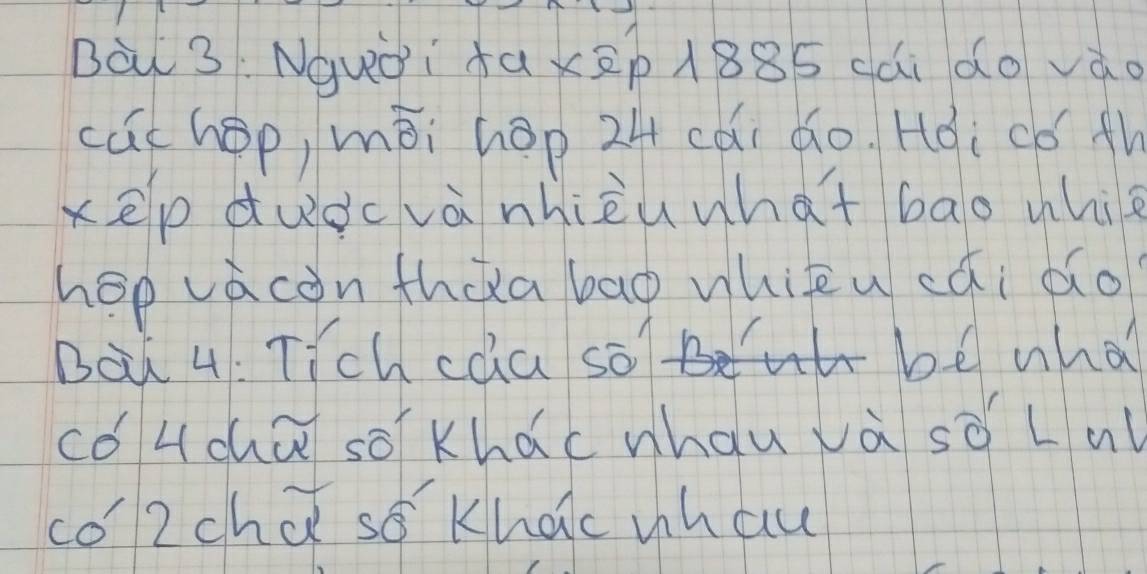 Bài 3. Người ta xếp 1885 cái áo vào
các hộp, mỗi hộp 24 cái áo. Hỏi có th
xếp được và nhiều nhất bao nhiê
hộp và còn thừa bao nhiêu cái áo
Bài 4: Tích của số bé nhấ
có 4 chữ số khác nhau và số L nh
có 2 chữ số khác nhau